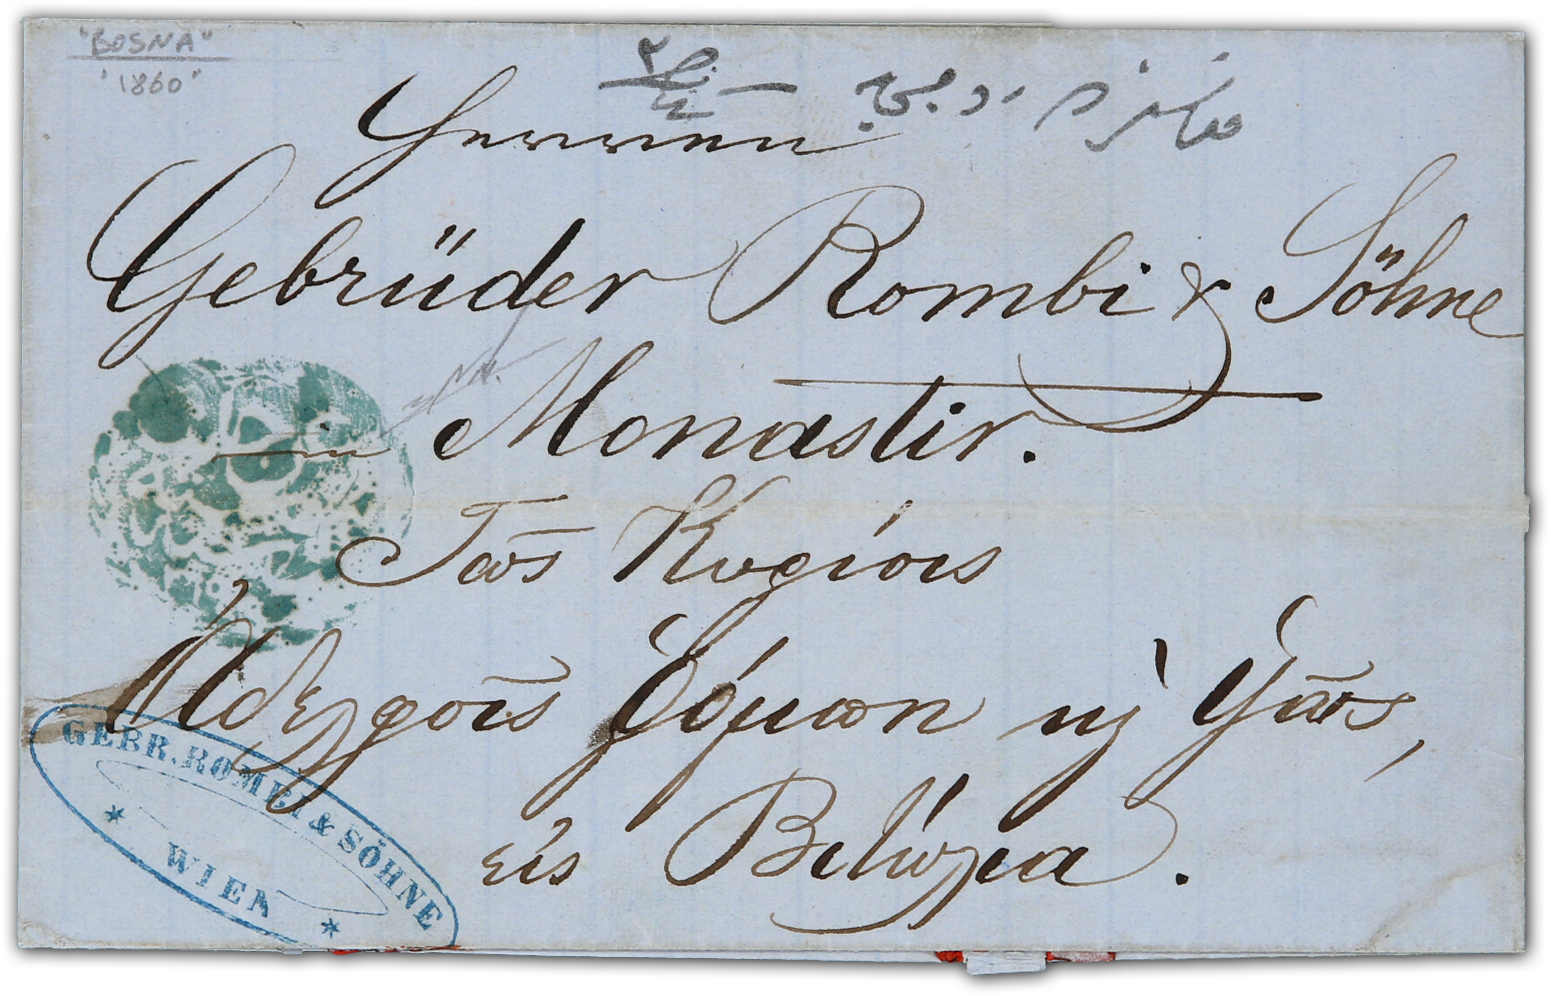 "BOSNA"
"1860"
Herren
Gebrüder Rombi & Söhne
in Monastir.
Τοῖς Κυρίοις
Ἀδελφοῖς Ῥόμπη κ' Υἱοῖς,
εἰς Βιτώλια.
GEBR. ROMBI & SÖHNE
* WIEN *